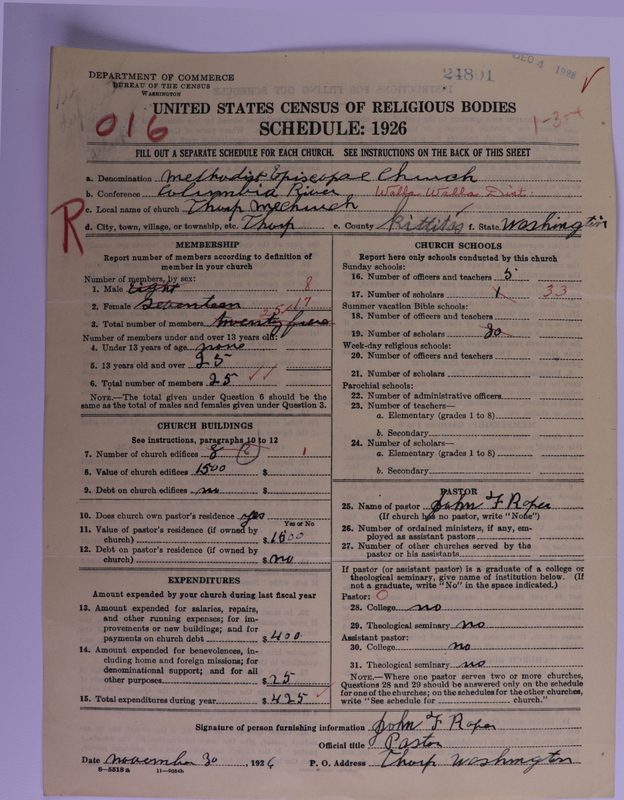 24801
DEC 4 1926
DEPARTMENT OF COMMERCE
BUREAU OF THE CENSUS
WASHINGTON
UNITED STATES CENSUS OF RELIGIOUS BODIES
016
SCHEDULE: 1926
1-3
FILL OUT A SEPARATE SCHEDULE FOR EACH CHURCH. SEE INSTRUCTIONS ON THE BACK OF THIS SHEET
a. Denomination Methodist Episcopal Church
b. Conference Columbia River Walla Walla Dist.
R
c. Local name of church Thorp M e Church
d. City, town, village, or township, etc. Thorp e. County Kittitas f. State Washington
MEMBERSHIP
Report number of members according to definition of
member in your church
Number of members, by sex:
1. Male Eight 8
2. Female Seventeen 17
3. Total number of members twenty five 25
Number of members under and over 13 years old:
4. Under 13 years of age none
5. 13 years old and over 25
6. Total number of members 25
NOTE.—The total given under Question 6 should be
same as the total of males and females given under Question 3.
CHURCH BUILDINGS
See instructions, paragraphs 10 to 12
7. Number of church edifices 8 1
8. Value of church edifices 1500 $
9. Debt on church edifices no $
10. Does church own pastor's residence yes
Yes or No
11. Value of pastor's residence (if owned by
church) $ 1500
12. Debt on pastor's residence (if owned by
church) $ no
EXPENDITURES
Amount expended by your church during last fiscal year
13. Amount expended for salaries, repairs,
and other running expenses; for im-
provements or new buildings; and for
payments on church debt $ 400
14. Amount expended for benevolences, in-
cluding home and foreign missions; for
denominational support; and for all
other purposes $ 25
15. Total expenditures during year $ 425
CHURCH SCHOOLS
Report here only schools conducted by this church
Sunday schools:
16. Number of officers and teachers 5
17. Number of scholars 33
Summer vacation Bible schools:
18. Number of officers and teachers
19. Number of scholars 30
Week-day religious schools:
20. Number of officers and teachers
21. Number of scholars
Parochial schools:
22. Number of administrative officers
23. Number of teachers—
a. Elementary (grades 1 to 8)
b. Secondary
24. Number of scholars—
a. Elementary (grades 1 to 8)
b. Secondary
PASTOR
25. Name of pastor John F Roper
(If church has no pastor, write "None")
26. Number of ordained ministers, if any, em-
ployed as assistant pastors
27. Number of other churches served by the
pastor or his assistants
If pastor (or assistant pastor) is a graduate of a college or
theological seminary, give name of institution below. (If
not a graduate, write "No" in the space indicated.)
Pastor: 0
28. College no
29. Theological seminary no
Assistant pastor:
30. College no
31. Theological seminary no
NOTE.—Where one pastor serves two or more churches,
Questions 28 and 29 should be answered only on the schedule
for one of the churches; on the schedules for the other churches,
write "See schedule for church."
Signature of person furnishing information John F Roper
Official title Pastor
Date november 30, 1926 P. O. Address Thorp Washington
8-5518 a 11-9054b